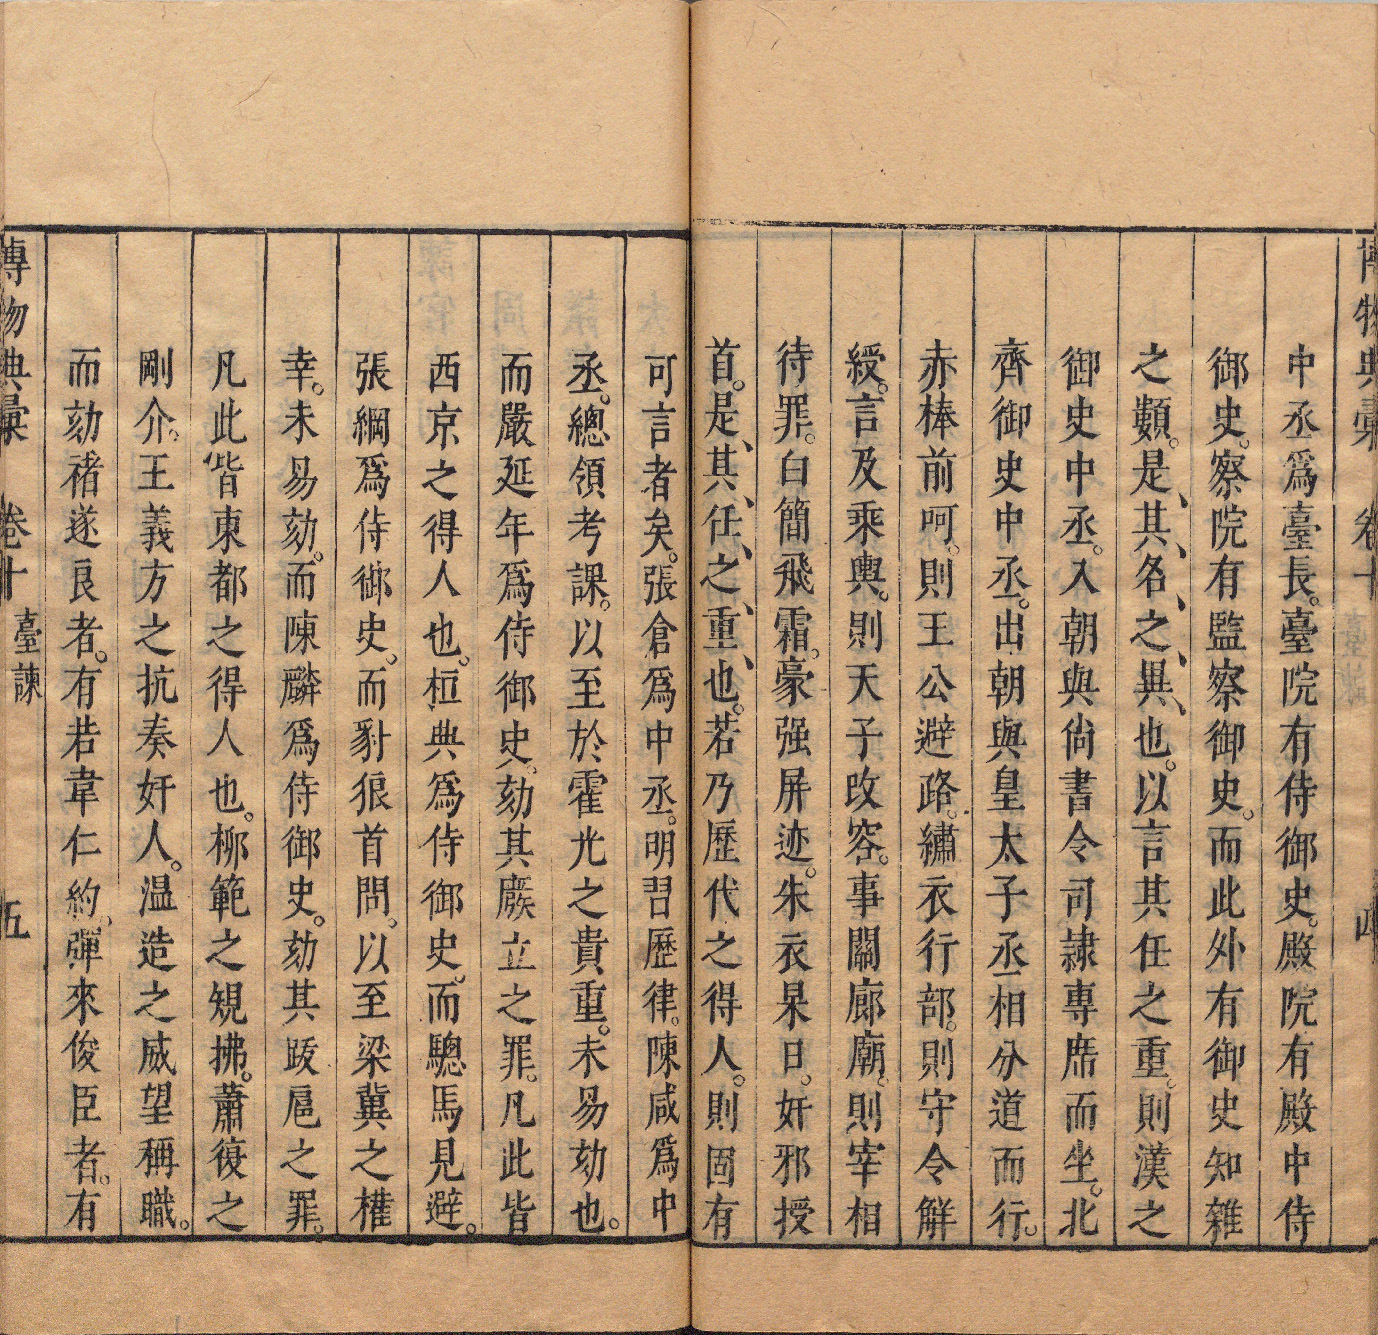 博物典彙 卷十
中丞爲臺長。臺院有侍御史。殿院有殿中侍
御史。察院有監察御史。而此外有御史知雜
之類。是其名之異也。以言其任之重。則漢之
御史中丞。入朝與尙書令司隷專席而坐。北
齊御史中丞。出朝與皇太子丞相分道而行。
赤棒前呵。則王公避路。繡衣行部。則守令解
綬。言及乘輿。則天子改容。事關廊廟。則宰相
待罪。白簡飛霜。豪强屏迹。朱衣杲日。奸邪授
首。是其任之重也。若乃歷代之得人。則固有
可言者矣。張倉爲中丞。明習歷律。陳咸爲中
丞。總領考課。以至於霍光之貴重。未易劾也。
而嚴延年爲侍御史。劾其廢立之罪。凡此皆
西京之得人也。桓典爲侍御史。而驄馬見避。
張綱爲侍御史。而豺狼首問。以至梁冀之權
幸。未易劾。而陳麟爲侍御史。劾其跋扈之罪。
凡此皆東都之得人也。柳範之規拂。蕭復之
剛介。王義方之抗奏奸人。温造之威望稱職。
而劾褚遂良者。有若韋仁約。彈來俊臣者。有
博物典彙 卷十 臺諫 五